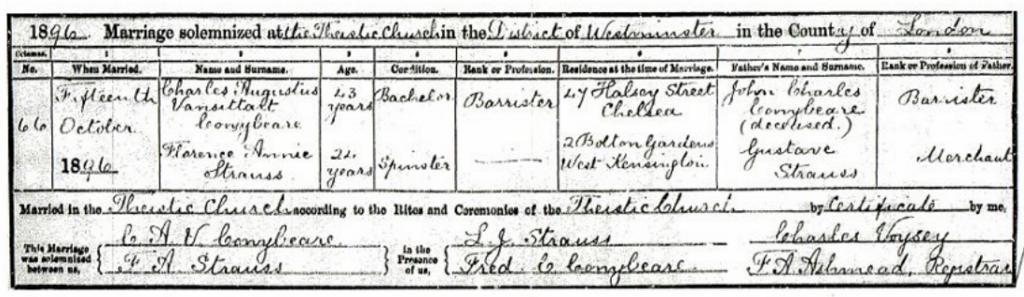 1896. Marriage solemnized at the Theistic Church in the District of Westminster in the County of London
Columns:— 1 2 3 4 5 6 7 8
No. When Married. Name and Surname. Age. Condition. Rank or Profession. Residence at the time of Marriage. Father's Name and Surname. Rank or Profession of Father.
66 Fifteenth October 1896
Charles Augustus Vansittart Conybeare 43 years Bachelor Barrister 47 Halsey Street Chelsea John Charles Conybeare (deceased.) Barrister
Florence Annie Strauss 24 years Spinster 2 Bolton Gardens West Kensington Gustave Strauss Merchant
Married in the Theistic Church according to the Rites and Ceremonies of the Theistic Church by Certificate by me,
This Marriage was solemnized between us, { C A V Conybeare F A Strauss } in the Presence of us, { L. J. Strauss Fred C Conybeare } Charles Voysey F A Ashmead, Registrar